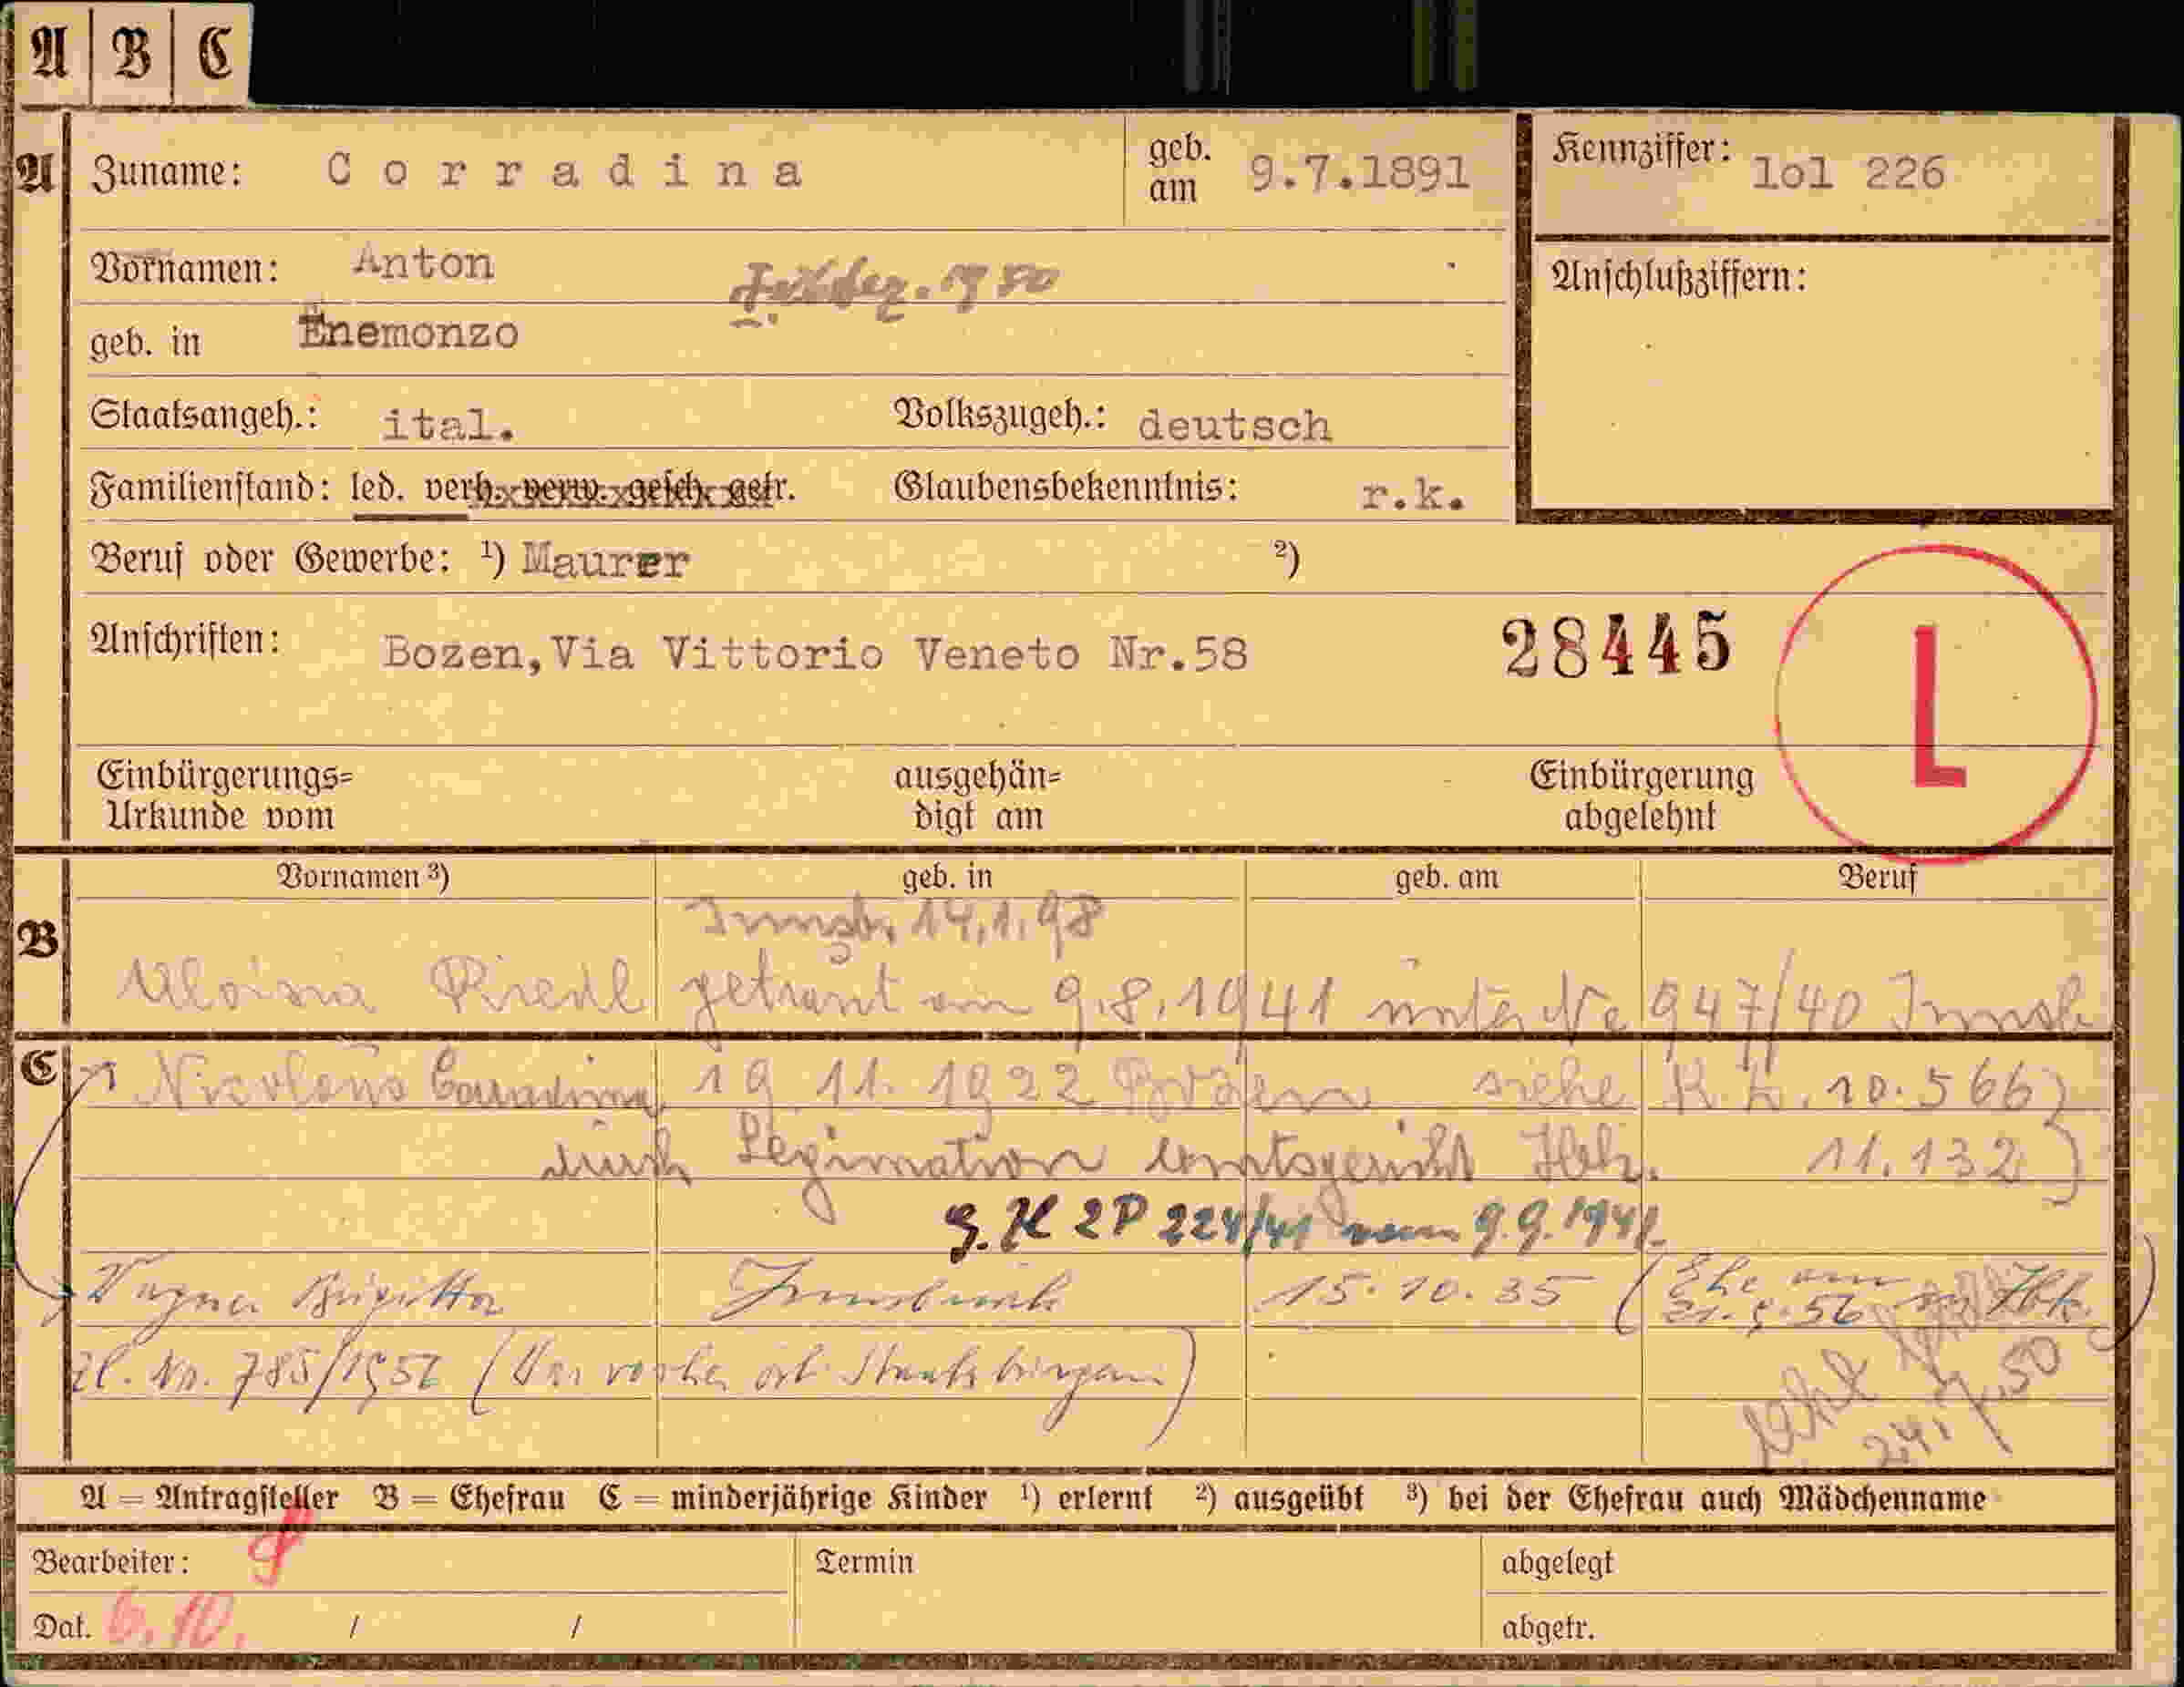 A B C
A Zuname: Corradina geb. am 9.7.1891 Kennziffer: 1o1 226
Vornamen: Anton
Anschlußziffern:
geb. in Enemonzo
Staatsangeh.: ital. Volkszugeh.: deutsch
Familienstand: led. verh. verw. gesch. getr. Glaubensbekenntnis: r.k.
Beruf oder Gewerbe: ¹) Maurer ²)
Anschriften: Bozen,Via Vittorio Veneto Nr.58 28445 L
Einbürgerungs= Urkunde vom ausgehän= digt am Einbürgerung abgelehnt
Vornamen ³) geb. in geb. am Beruf
B Innsb. 14.1.98
Aloisia Riedl getraut am 9.8.1941 unter Nr 947/40 Innsb
C Nicolaus Corradina 19 11. 1922 Bozen siehe K.Z. 10.566
durch Legimation Amtsgericht Ibk. 11.132
G.Z. 2P 224/41 vom 9.9.1941.
Wagner Brigitta Innsbruck 15.10.35 (Ehe am
21.5.56 in Ibk.)
Zl. Nr. 785/1956 (War vorher öst. Staatsbürgerin)
24. 50
A = Antragsteller B = Ehefrau C = minderjährige Kinder ¹) erlernt ²) ausgeübt ³) bei der Ehefrau auch Mädchenname
Bearbeiter: Termin abgelegt
Dat. 6.10. / / abgetr.